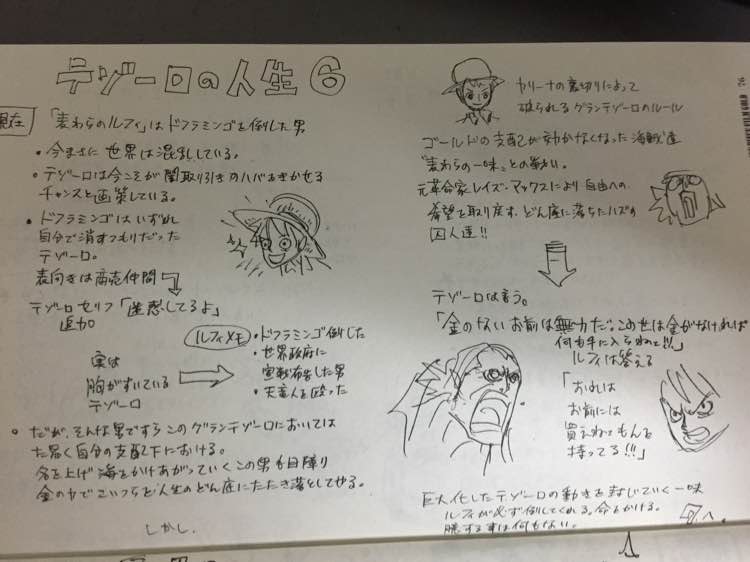 テゾーロの人生 6
現在
「麦わらのルフィ」はドフラミンゴを倒した男
・今まさに世界は混乱している。
・テゾーロは今こそが闇取り引きのハバをきかせる
チャンスと画策している。
・ドフラミンゴはいずれ
自分で消すつもりだった
テゾーロ。
表向きは商売仲間
テゾーロセリフ「迷惑してるよ」
追加
実は
胸がすいている
テゾーロ
ルフィメモ
・ドフラミンゴ倒した
・世界政府に
宣戦布告した男
・天竜人を殴った
○ だが、そんな男ですらこのグランテゾーロにおいては
た易く自分の支配下における。
名を上げ海をかけあがっていくこの男も目障り
金の力でこいつらを人生のどん底にたたき落としてやる。
しかし、
カリーナの裏切りによって
破られるグランテゾーロのルール
ゴールドの支配が効かなくなった海賊達
"麦わらの一味"との戦い。
元革命家レイズ・マックスにより自由への
希望を取り戻す、どん底に落ちたハズの
囚人達!!
テゾーロは言う。
「金のないお前は無力だ。この世は金がなければ
何も手に入らねェと!!」
ルフィは答える
「おれは
お前には
買えねェもんを
持ってる!!!」
巨大化したテゾーロの動きを封じていく一味
ルフィが必ず倒してくれる。命をかける。
臆する事は何もない。